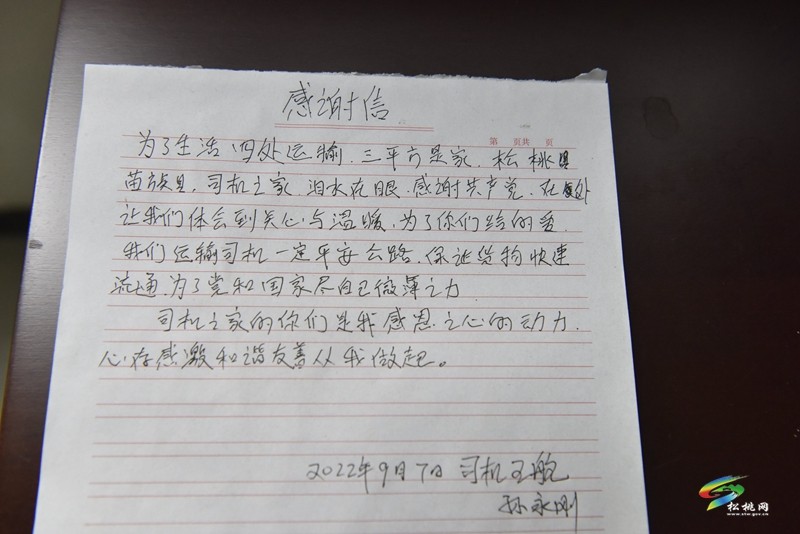 感谢信
第 页共 页
为了生活四处运输.三平方是家.松桃县
苗族县.司机之家 泪水在眼.感谢共产党.在处
让我们体会到关心与温暖.为了你们给的爱.
我们运输司机一定平安公路.保证货物快速
流通.为了党和国家尽自己微薄之力
司机之家的你们是我感恩之心的动力.
心存感激和谐友善从我做起。
2022年9月7日 司机王航
孙永刚
松桃网
www.stw.gov.cn